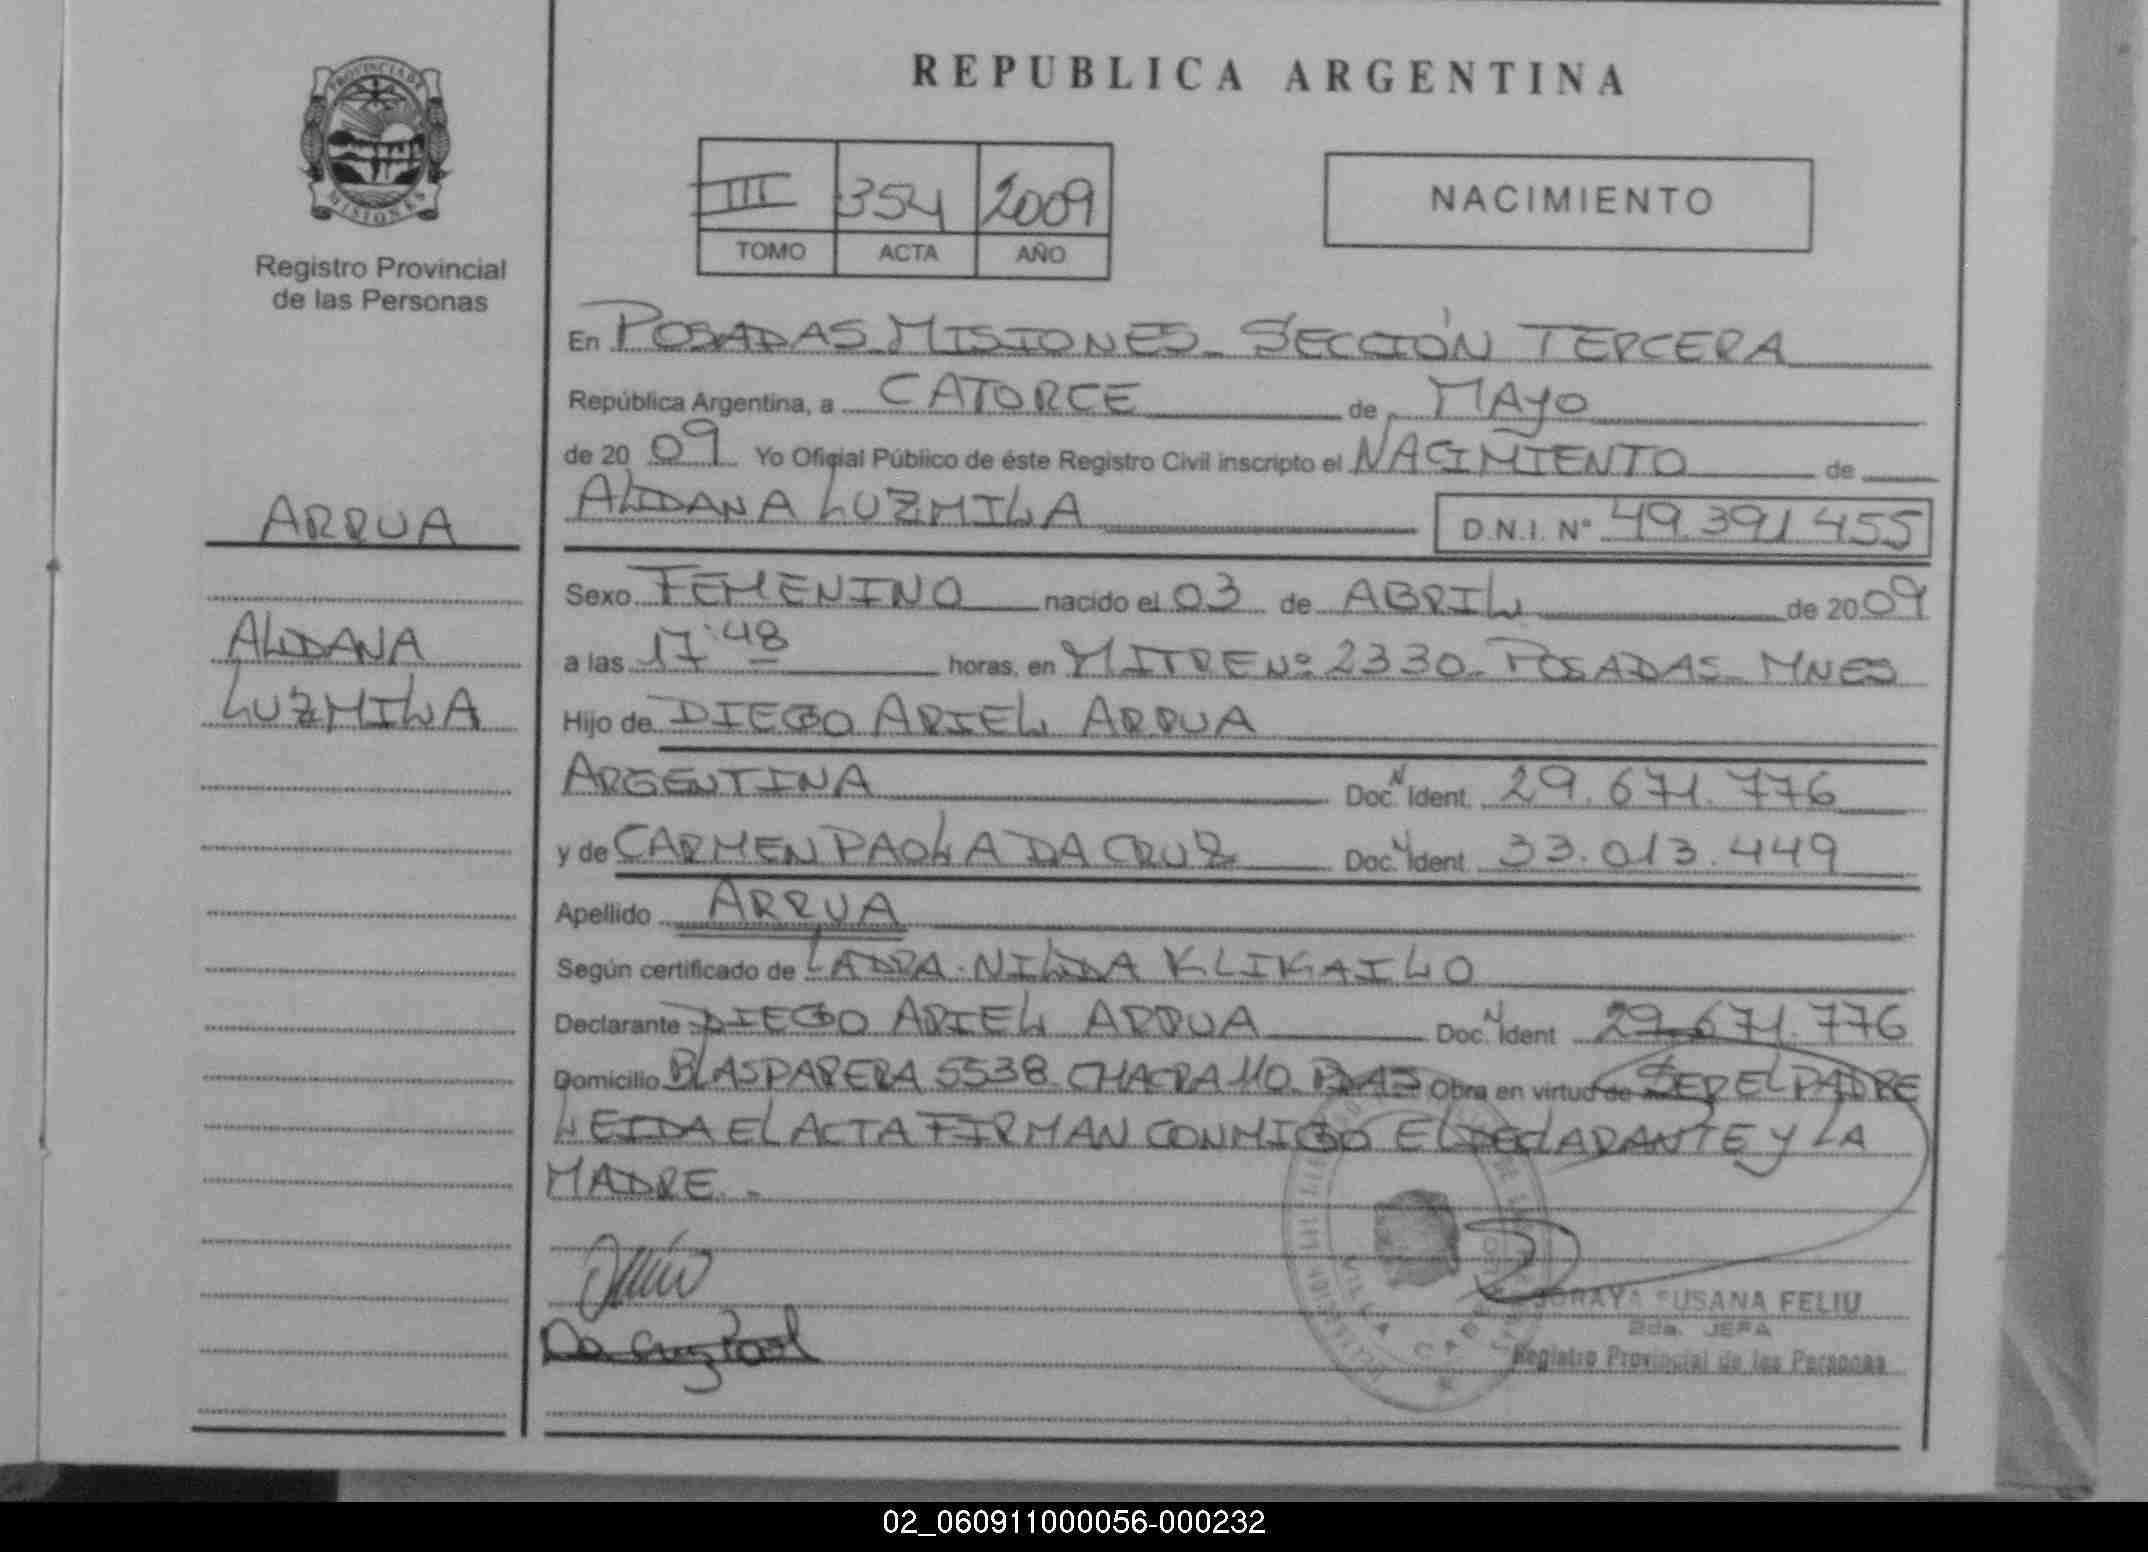 PROVINCIA DE
MISIONES
Registro Provincial
de las Personas
REPUBLICA ARGENTINA
III 354 2009
TOMO ACTA AÑO
NACIMIENTO
En POSADAS MISIONES - SECCIÓN TERCERA
República Argentina, a CATORCE de MAYO
de 20 09 Yo Oficial Público de éste Registro Civil inscripto el NACIMIENTO de
ALDANA LUZMILA D.N.I. Nº 49.391.455
ARRUA
ALDANA
LUZMILA
Sexo FEMENINO nacido el 03 de ABRIL de 20 09
a las 17:48 horas, en MITRE Nº 2330 - POSADAS - MNES
Hijo de DIEGO ARIEL ARRUA
ARGENTINA Doc. N Ident. 29.671.776
y de CARMEN PAOLA DA CRUZ Doc. Ident. 33.013.449
Apellido ARRUA
Según certificado de LA DRA. NILDA KLIKAILO
Declarante DIEGO ARIEL ARRUA Doc. N Ident 29.671.776
Domicilio BLAS PARERA 5538 CHACRA 110 PDAS Obra en virtud de SER EL PADRE
LEIDA EL ACTA FIRMAN CONMIGO EL DECLARANTE Y LA
MADRE. -
Da Cruz Paol
SORAYA SUSANA FELIU
2da. JEFA
Registro Provincial de las Personas
02_060911000056-000232